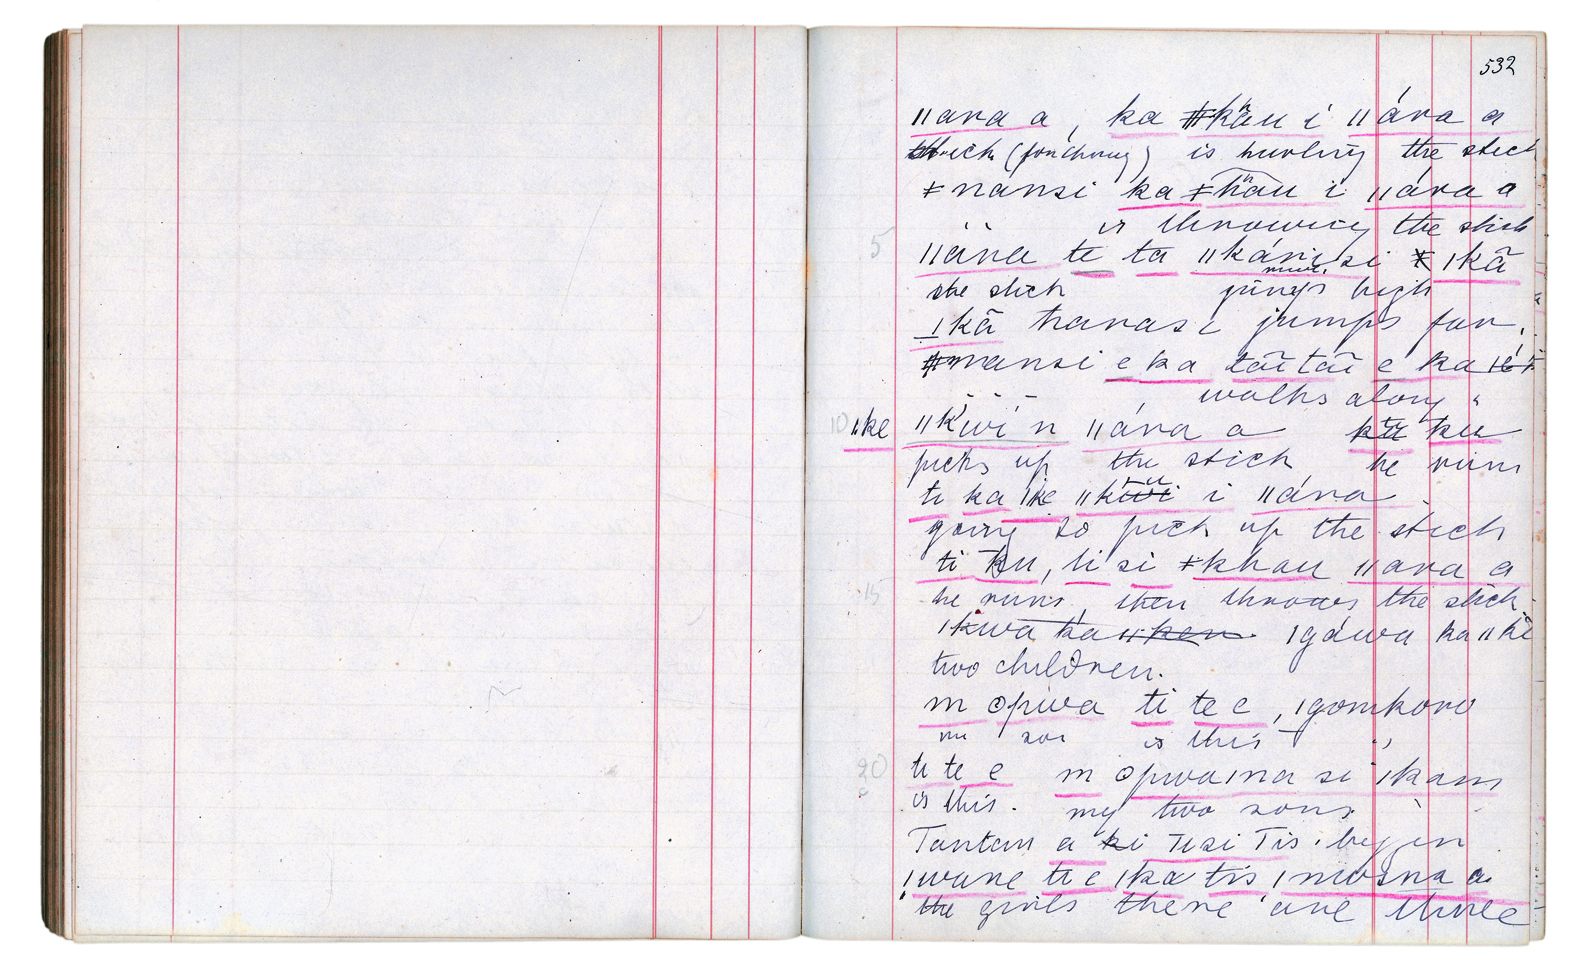 532
ǁara a, ka ǂkãu i ǁára a
stick (for throwing) is hurling the stick
ǂnansi ka ǂhau i ǁára a
is throwing the stick
5
ǁāra te ta ǁkárisi ǀkã
the stick jumps high
ǀkã harasi jumps far.
ǂnansi e ka tãĩ tãĩ e ka
walks along "
10 ǁke ǁkwi n ǁára a ku
picks up the stick he runs
ti ka ǀke ǁkwi i ǁára
going to pick up the stick
ti ku, ti si ǂkhau ǁara a
15
he runs, then throws the stick.
ǀkwa ka ǁken. ǀgáwa ka ǁke
two children.
m opwa ti te e, ǀgomkoro
my son is this "
20
ti te e m opwaǀna si ǀkam
is this. my two sons
Tantan a ki Tisi Tis. begin
ǃwane ti e ǀka tis ǀnwasna a
the girls there are three